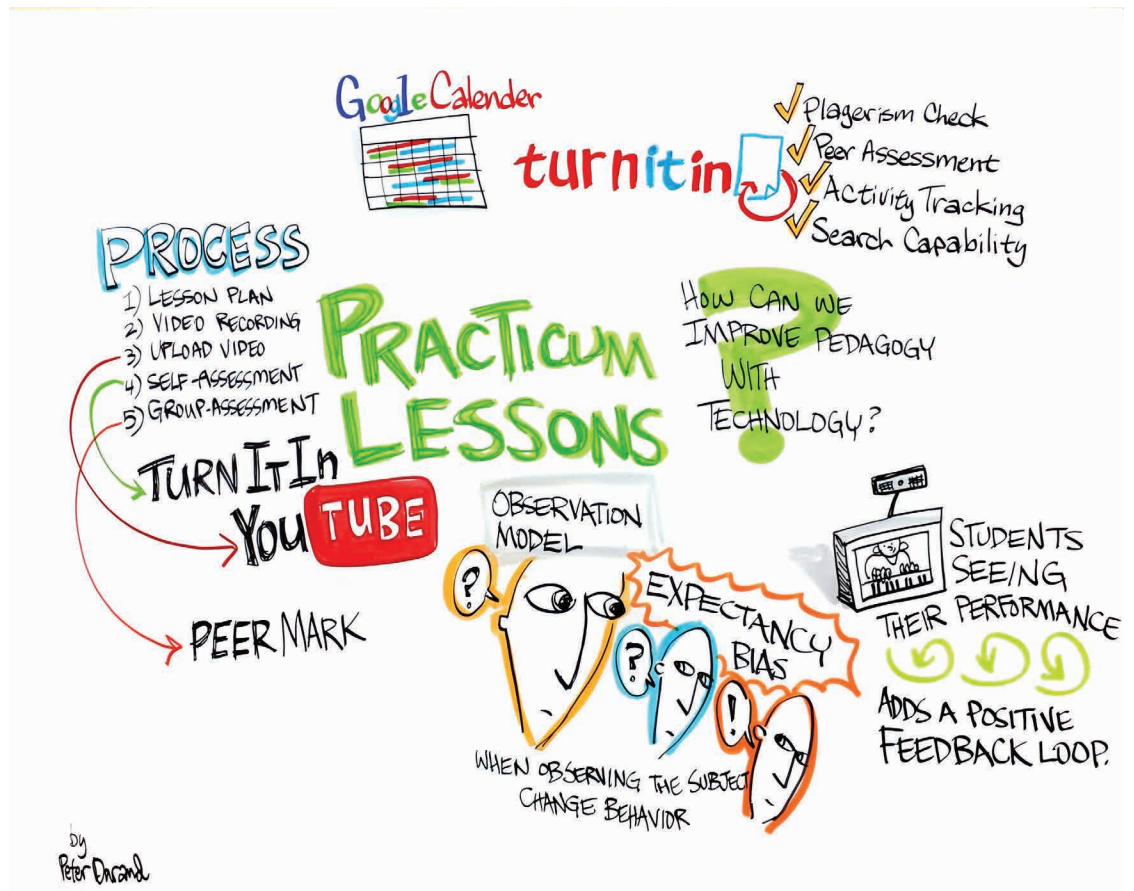 Google Calender
turnitin
Plagerism Check
Peer Assessment
Activity Tracking
Search Capability
PROCESS
1) LESSON PLAN
2) VIDEO RECORDING
3) UPLOAD VIDEO
4) SELF-ASSESSMENT
5) GROUP-ASSESSMENT
PRACTICUM
LESSONS
HOW CAN WE
IMPROVE PEDAGOGY
WITH
TECHNOLOGY?
?
TURN IT In
YOU TUBE
PEER MARK
OBSERVATION
MODEL
?
EXPECTANCY
BIAS
?
!
WHEN OBSERVING THE SUBJECT
CHANGE BEHAVIOR
STUDENTS
SEEING
THEIR PERFORMANCE
ADDS A POSITIVE
FEEDBACK LOOP.
by
Peter Durand